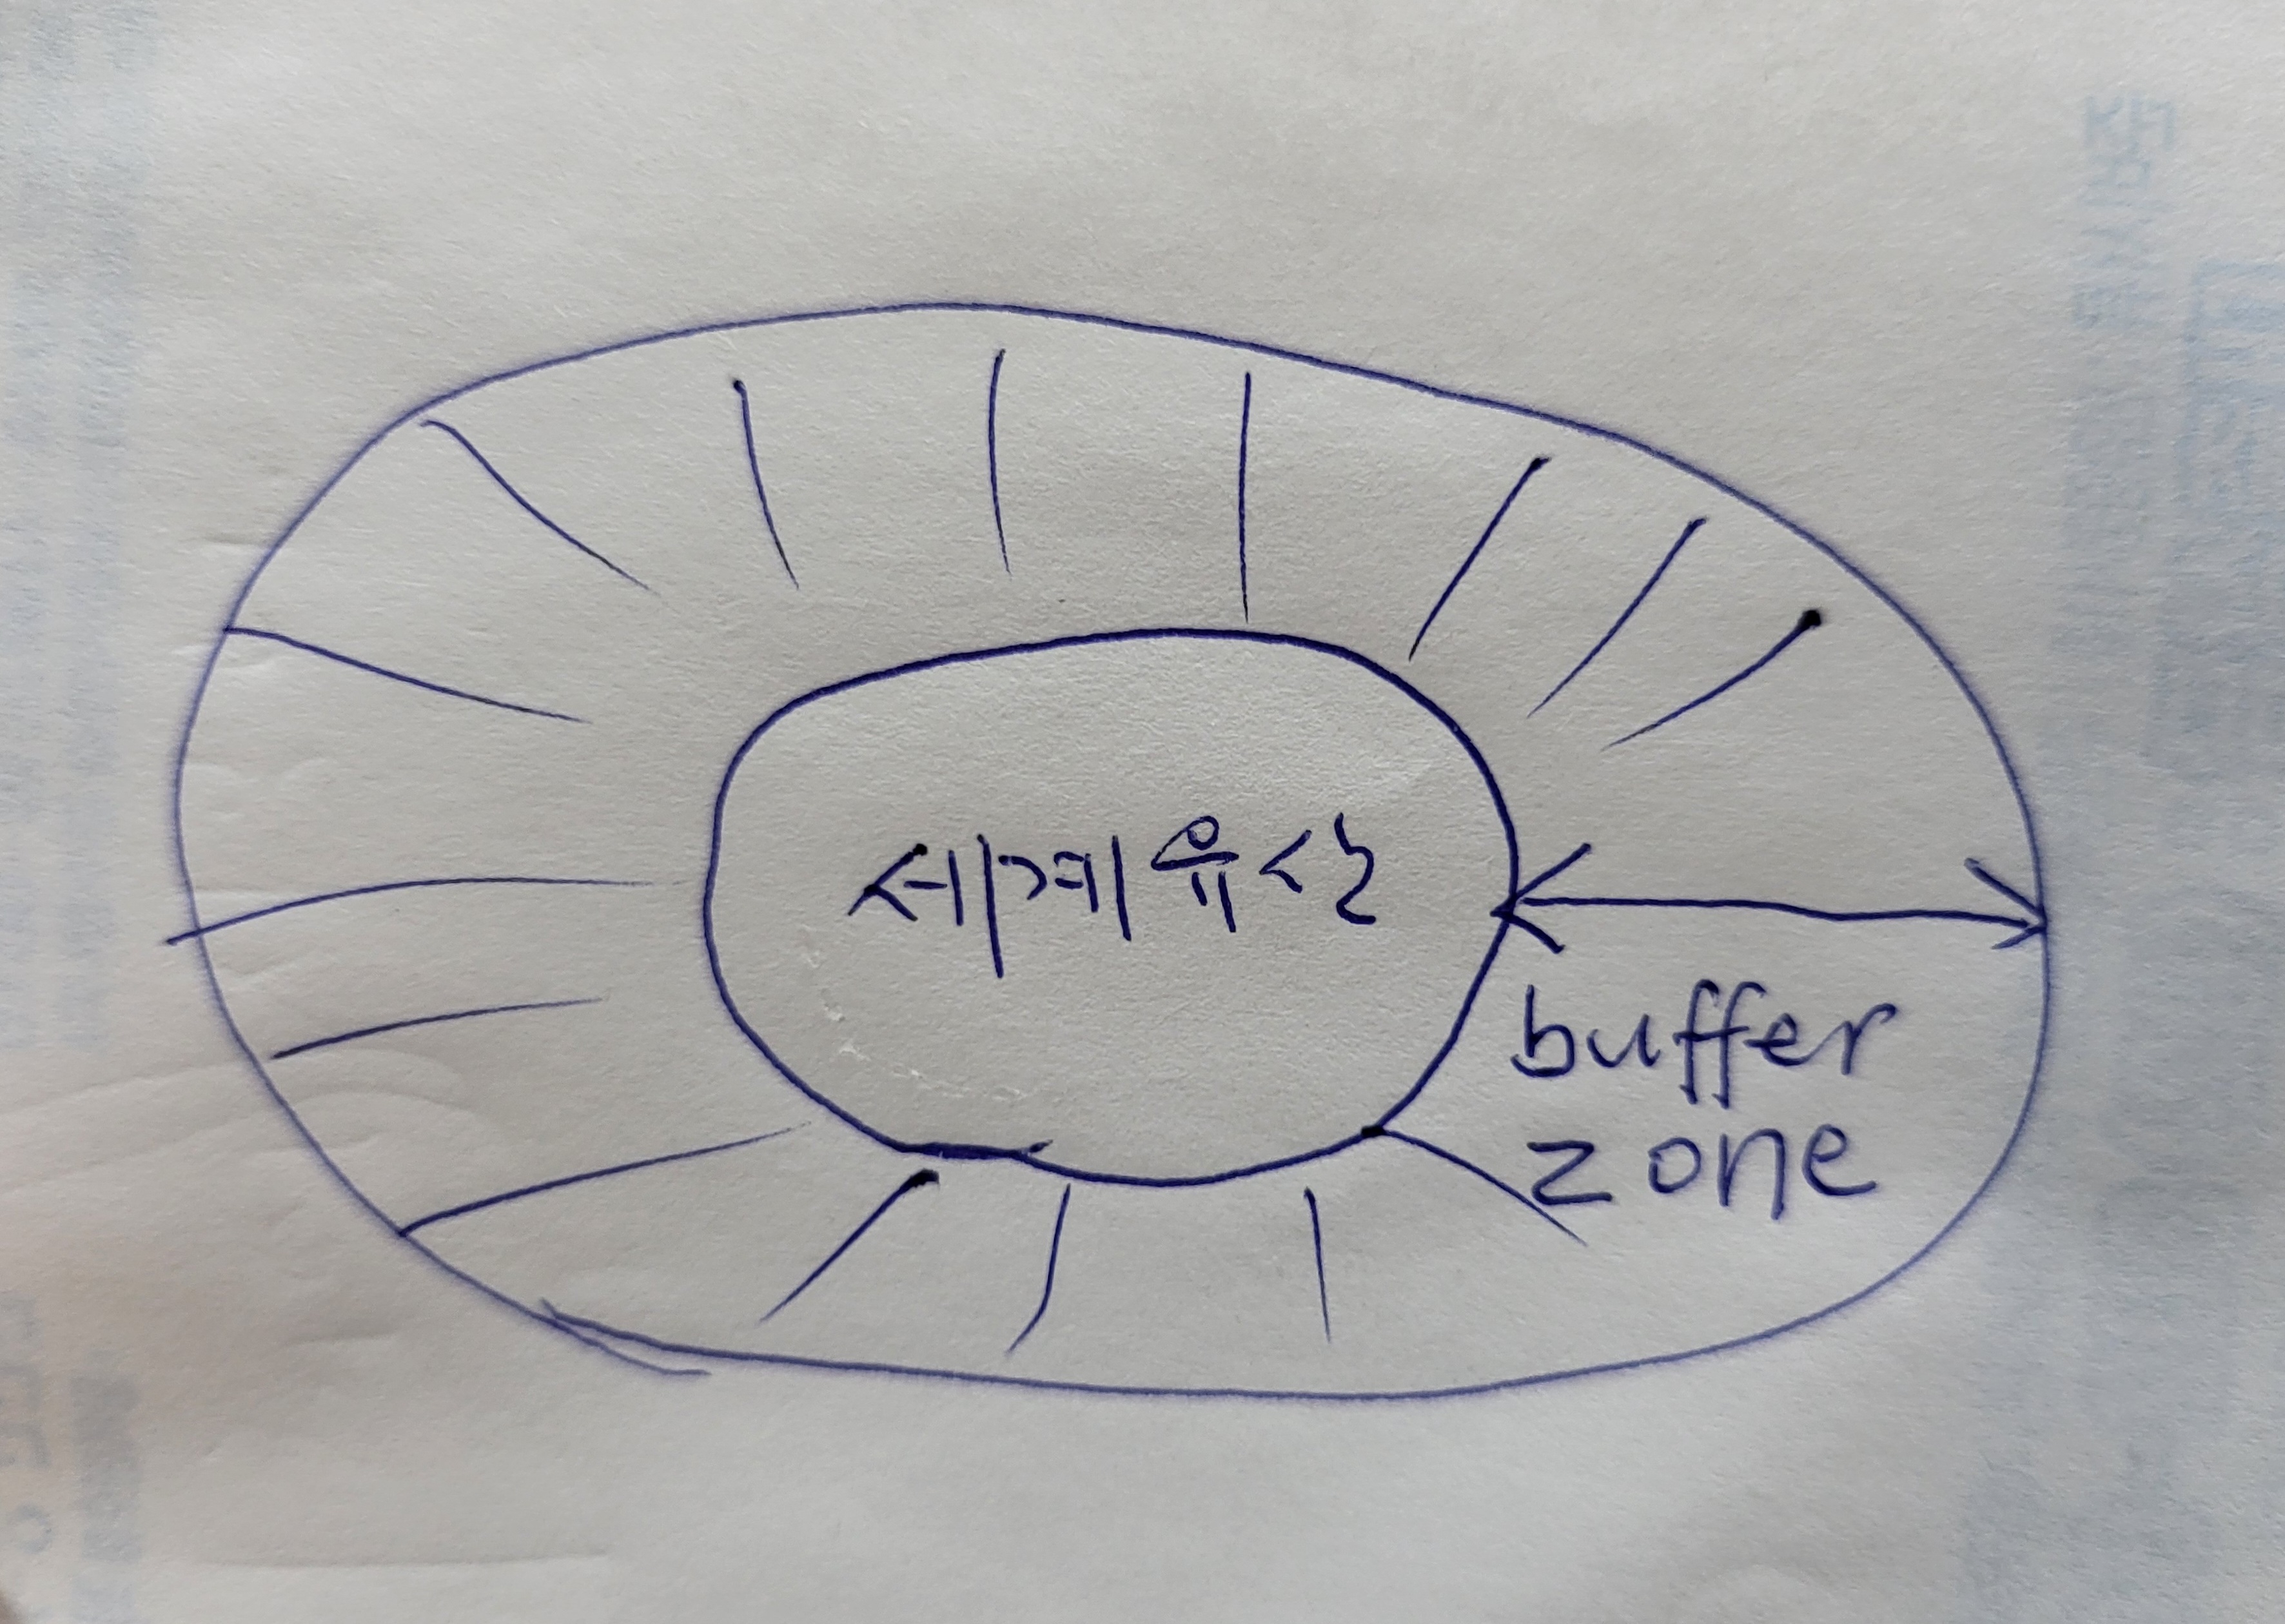 세계유산
buffer
zone